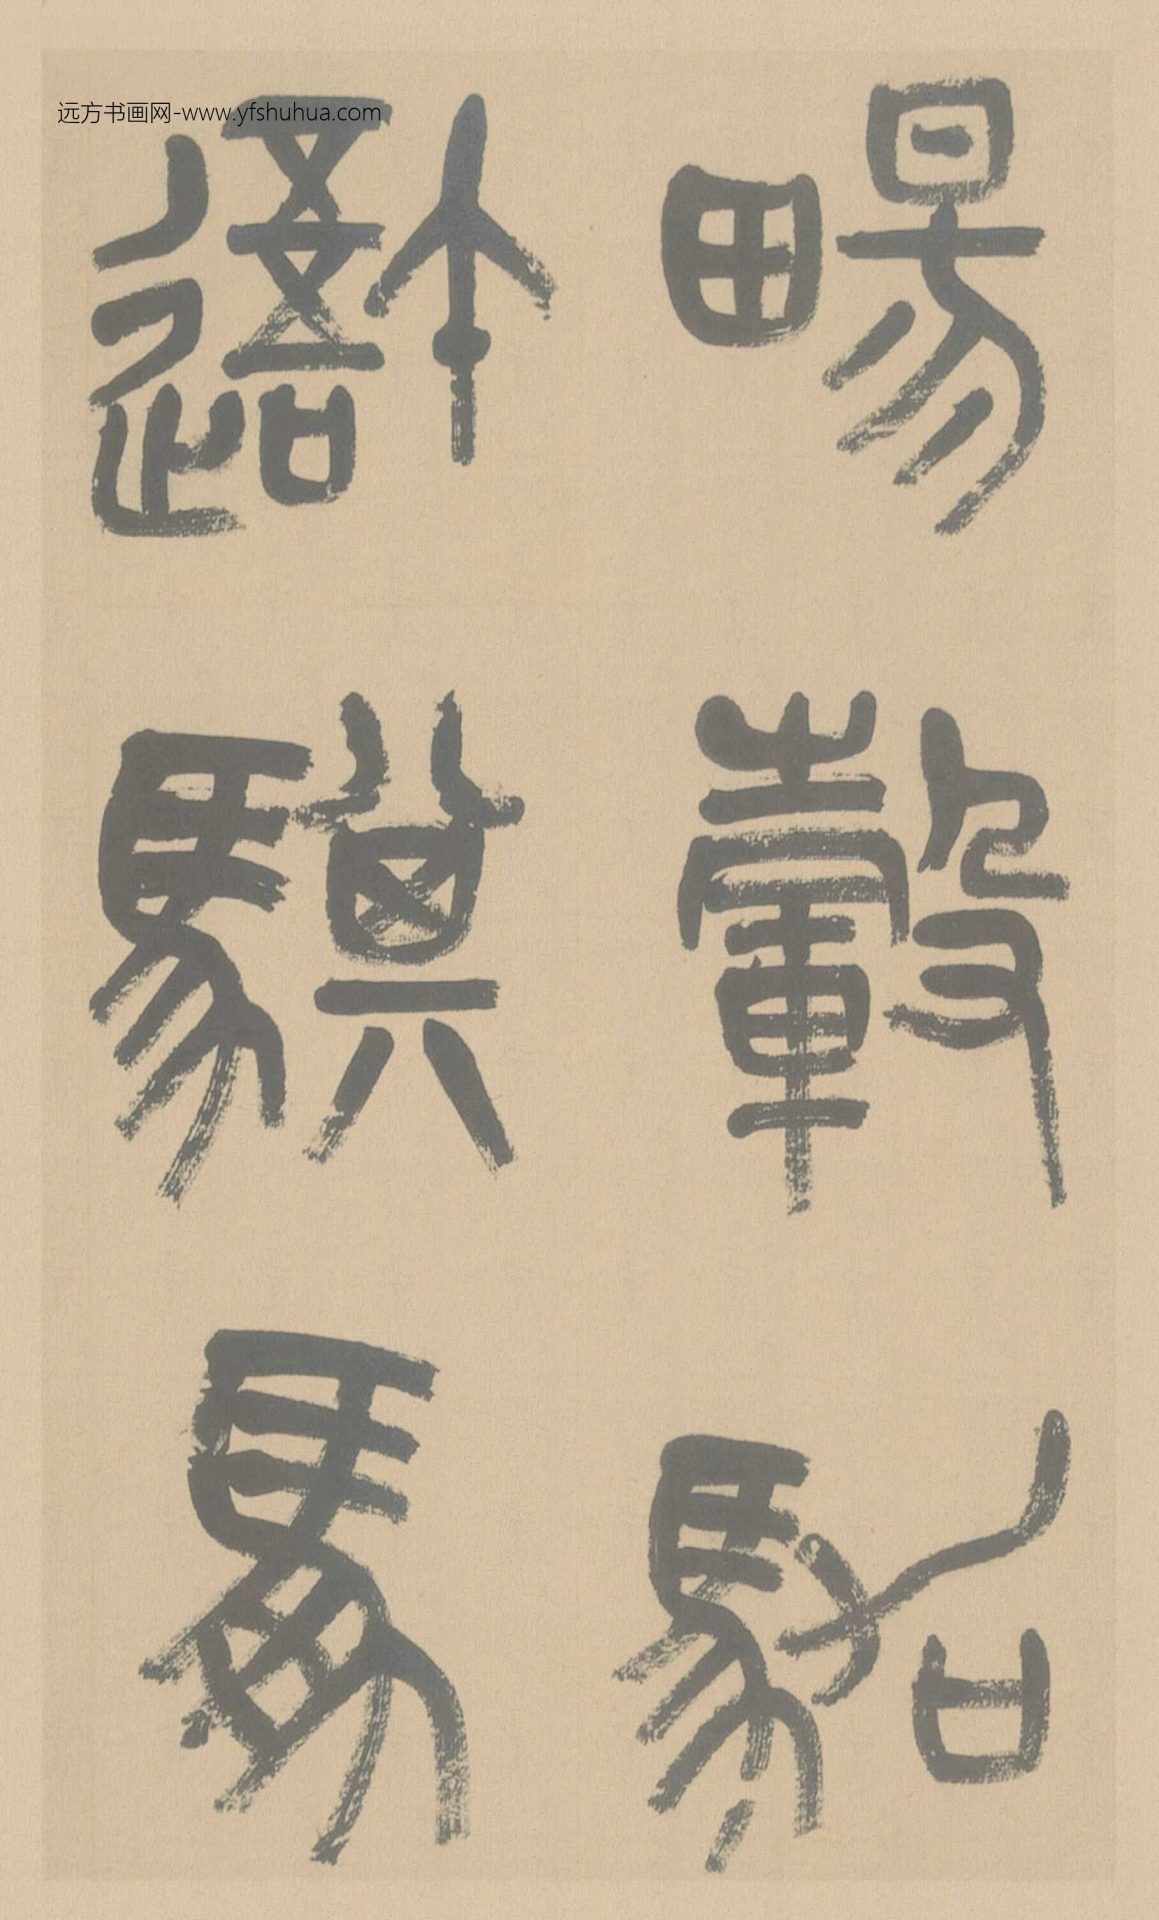 远方书画网-www.yfshuhua.com
畼轂駕
騏馵